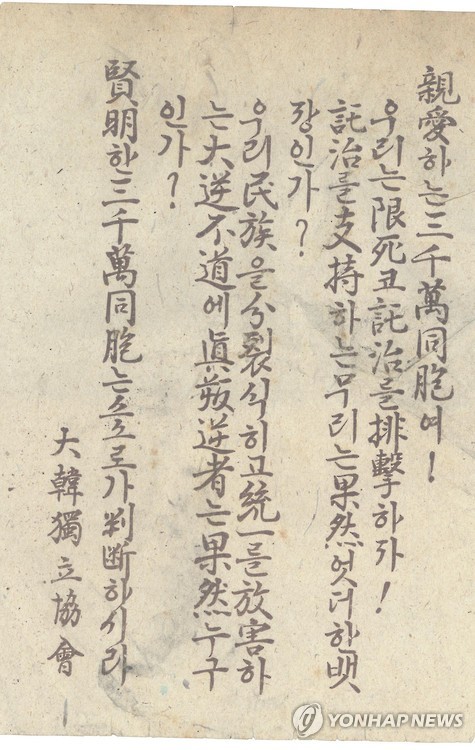 親愛하는三千萬同胞여!
우리는限死코託治를排擊하자!
託治를支持하는무리는果然엇더한뱃
장인가?
우리民族을分裂식히고統一를放害하
는大逆不道에眞叛逆者는果然누구
인가?
賢明한三千萬同胞는스스로가判断하시라
大韓獨立協會
YONHAPNEWS